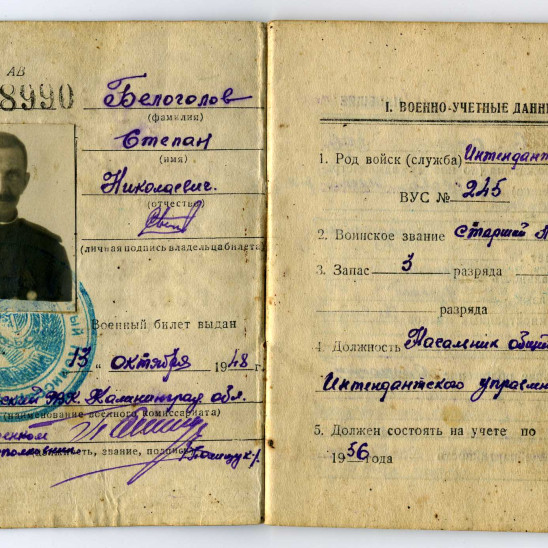 АВ
8990
Белоголов
(фамилия)
Степан
(имя)
Николаевич.
(отчество)
(личная подпись владельца билета)
Военный билет выдан
"13" октября 1948 г.
ский РВК Калининград обл.
(наименование военного комиссариата)
военком
полковник
(должность, звание, подпись)
I. ВОЕННО-УЧЕТНЫЕ ДАНН
1. Род войск (служба) Интендант
ВУС № 245
2. Воинское звание Старший
3. Запас 3 разряда
разряда
4. Должность общ
Интендантского управлен
5. Должен состоять на учете по
1956 года